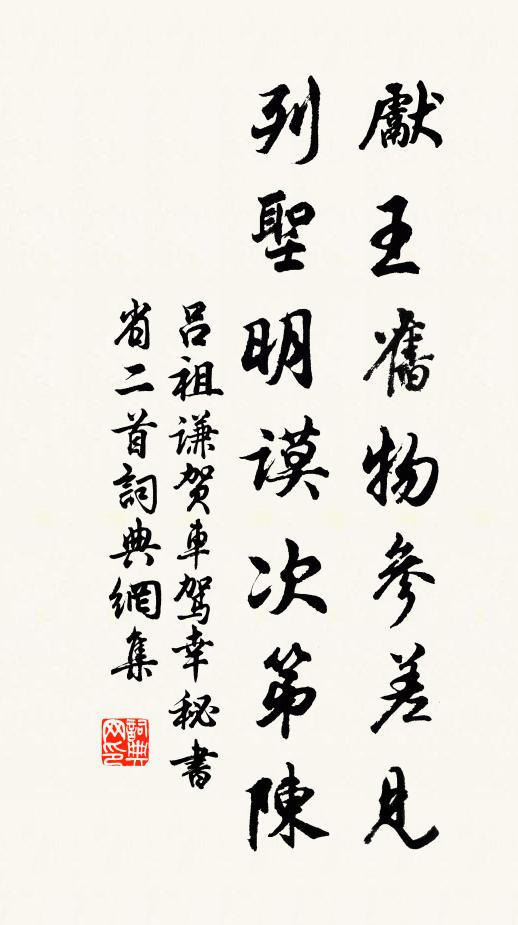 獻王舊物參差見
列聖明謨次第陳
呂祖謙賀車駕幸秘書
省二首詞典網集
詞典網印